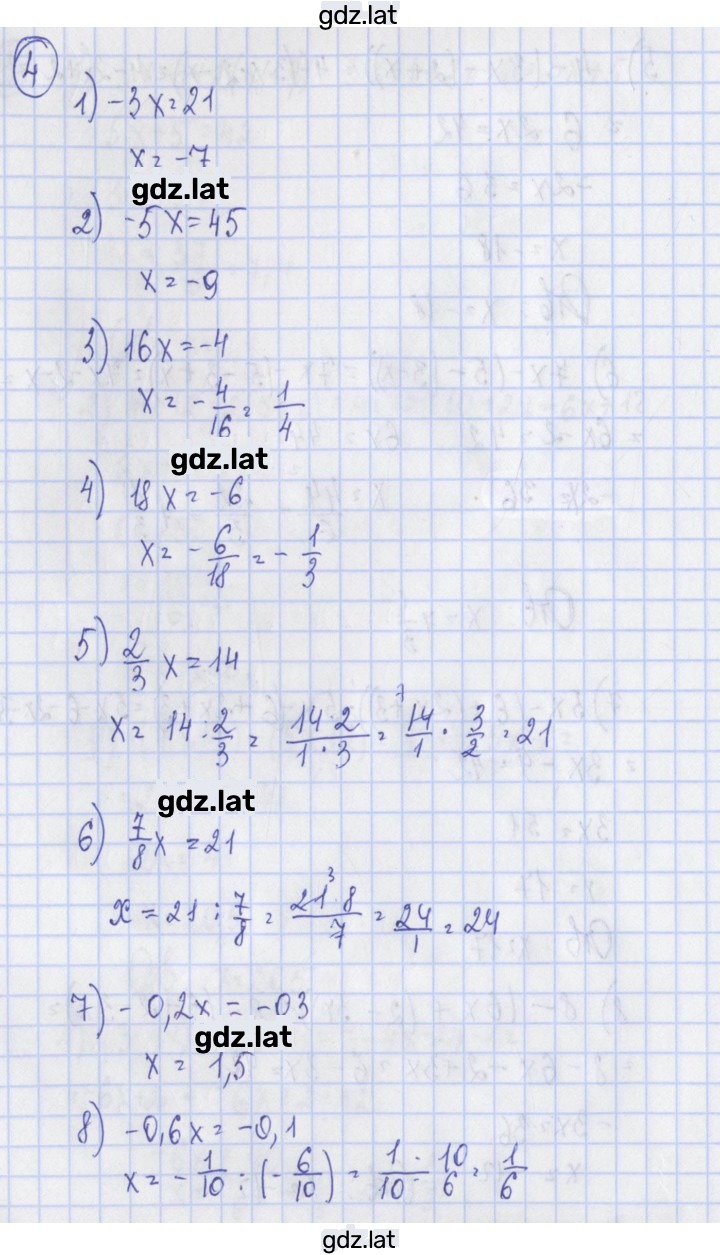 gdz.lat
4
1) -3x=21
x= -7
gdz.lat
2) -5x=45
x= -9
3) 16x=-4
x= -4/16= 1/4
gdz.lat
4) 18x= -6
x= -6/18= -1/3
5) 2/3 x=14
x= 14:2/3= 14·2/1·3= 7 14/1·3/2=21
gdz.lat
6) 7/8x=21
x=21:7/8= 21 3·8/7= 24/1=24
7) -0,2x=-03
gdz.lat
x= 1,5
8) -0,6x=-0,1
x= -1/10:(-6/10)= 1/10·10/6=1/6
gdz.lat